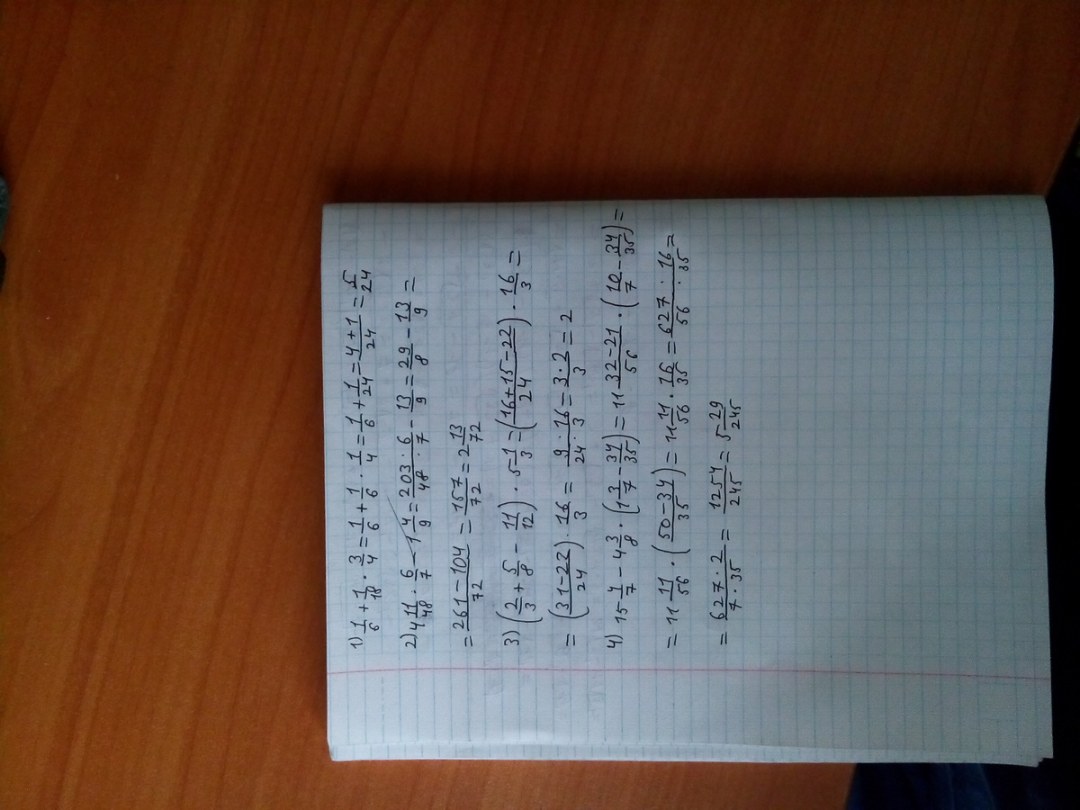 1) 1/6 + 1/18 · 3/4 = 1/6 + 1/6 · 1/4 = 1/6 + 1/24 = (4+1)/24 = 5/24
2) 4 11/48 · 6/7 - 1 4/9 = (203 · 6)/(48 · 7) - 13/9 = 29/8 - 13/9 =
= (261 - 104)/72 = 157/72 = 2 13/72
3) (2/3 + 5/8 - 11/12) · 5 1/3 = ((16+15-22)/24) · 16/3 =
= ((31-22)/24) · 16/3 = (9 · 16)/(24 · 3) = (3 · 2)/3 = 2
4) 15 4/7 - 4 3/8 · (1 3/7 - 34/35) = 11 (32-21)/56 · (10/7 - 34/35) =
= 11 11/56 · ((50-34)/35) = 11 11/56 · 16/35 = (627 · 16)/(56 · 35) =
= (627 · 2)/(7 · 35) = 1254/245 = 5 29/245